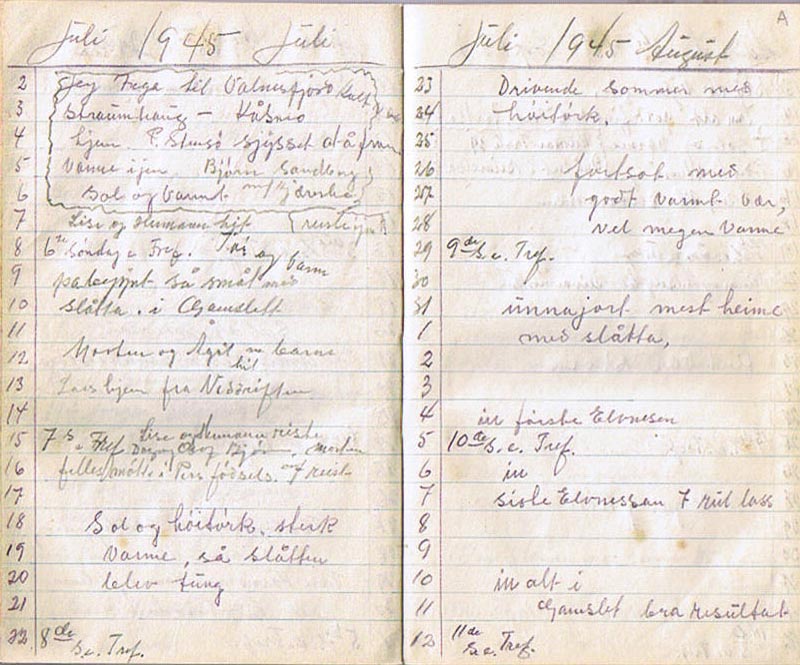 Juli 1945 Juli
2 Jeg Frega til Valnesfjord
3 Straumhaug - Kåsmo
4 hjem. P. Stensö
5 Varme igjen, Bjørn Sandberg
6 Sol og Varmt
7 Lise og Hermann hjit
8 6te Söndag e Tref. og Varm
9 paabejynt så smål med
10 slåtta. i Gamslett
11
12 Morten og Ågit m barna
13 Lars hjem fra Neddriften
14
15 7 s e Tref Lise og Hermann reiste
16 fellesmöte i Pers födsels. reist
17
18 Sol og höitörk. sterk
19 Varme, så slåtten
20 blev tüng
21
22 8de S.e. Tref.
Juli 1945 August
A
23 Drivende sommer med
24 höitörk.
25
26 fortsat med
27 godt varmt vær,
28 vel megen Varme
29 9de S.e. Tref.
30
31 ünnajort mest heime
1 med slåtta,
2
3
4 in förste Elvnesen
5 10de S.e. Tref.
6 in
7 siste Elvnessan 7 lass
8
9
10 in alt i
11 Gamslet bra resultat
12 11de S.e. Tref.